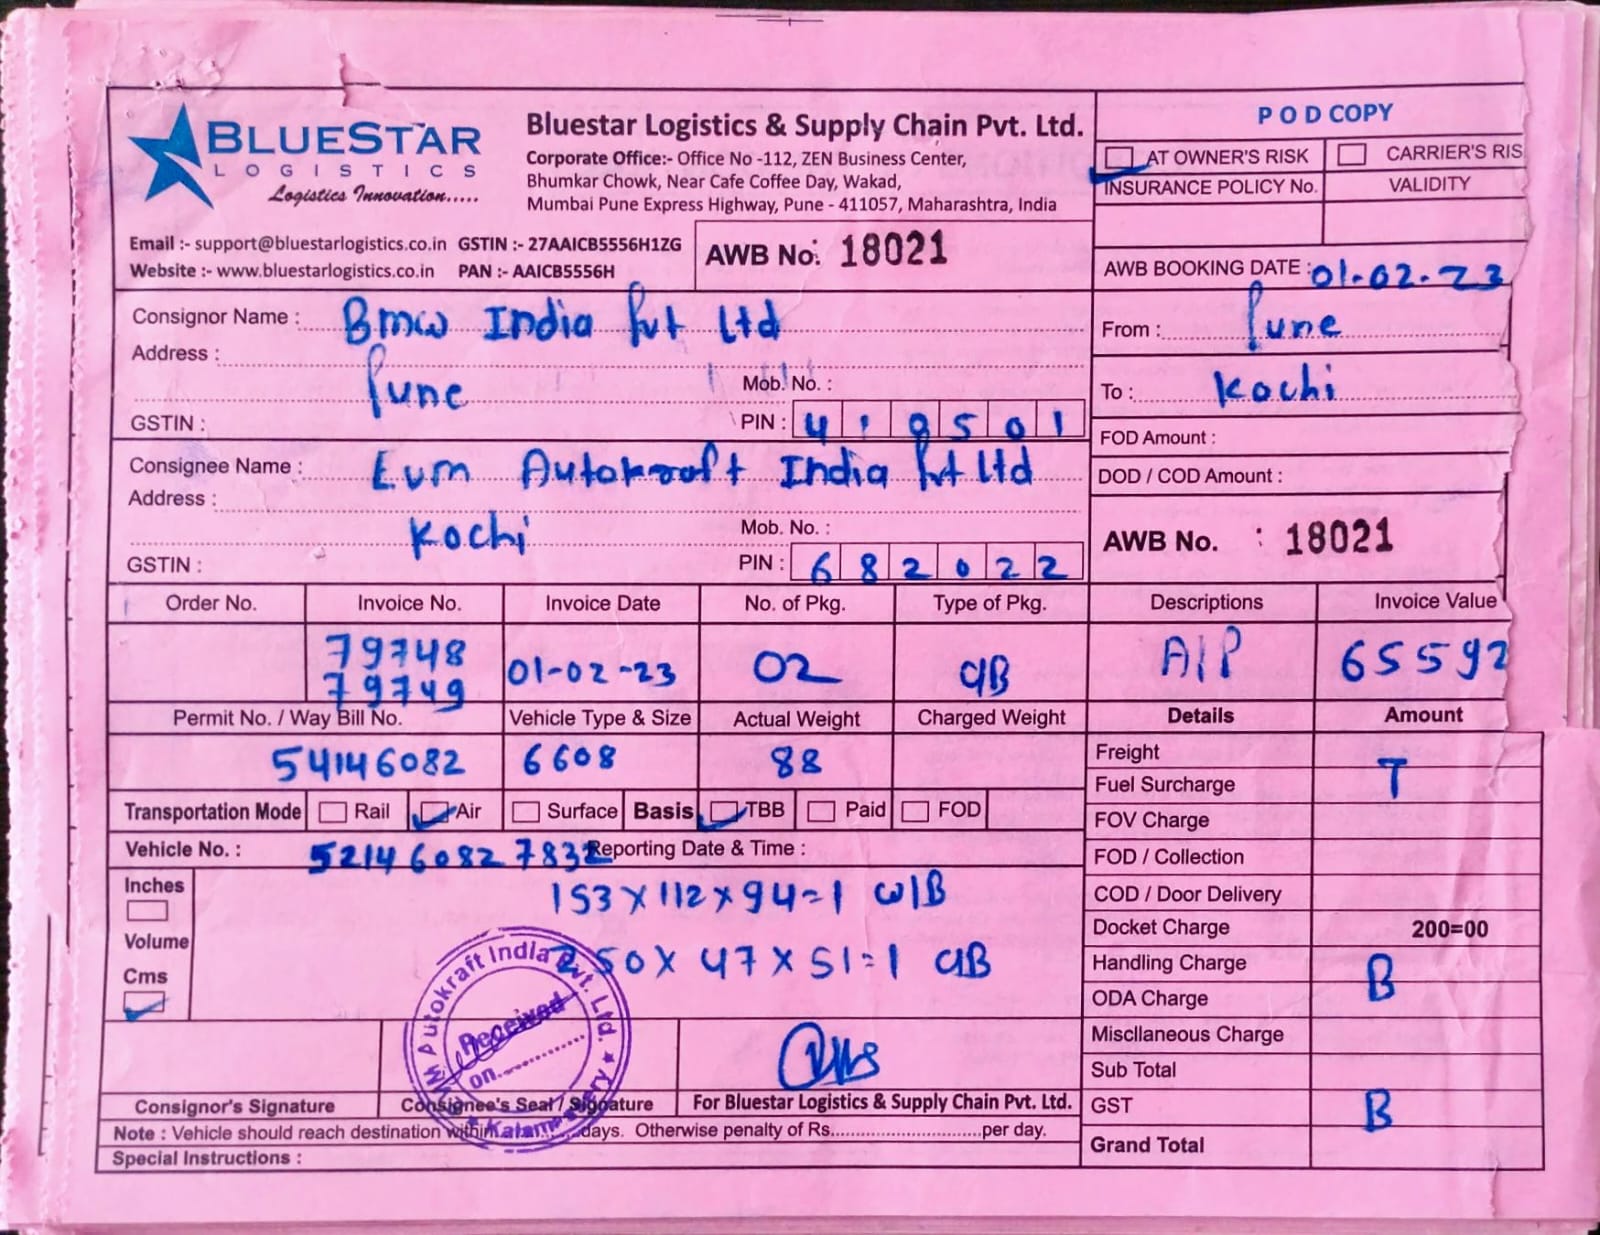 BLUESTAR
LOGISTICS
Logistics Innovation.....
Bluestar Logistics & Supply Chain Pvt. Ltd.
Corporate Office:- Office No -112, ZEN Business Center,
Bhumkar Chowk, Near Cafe Coffee Day, Wakad,
Mumbai Pune Express Highway, Pune - 411057, Maharashtra, India
Email :- support@bluestarlogistics.co.in GSTIN :- 27AAICB5556H1ZG
Website :- www.bluestarlogistics.co.in PAN :- AAICB5556H
AWB No: 18021
POD COPY
AT OWNER'S RISK CARRIER'S RIS
INSURANCE POLICY No. VALIDITY
AWB BOOKING DATE : 01-02-23
Consignor Name : Bmw India Pvt Ltd
Address :
Pune Mob. No. :
GSTIN : PIN : 418501
From : Pune
To : Kochi
FOD Amount :
DOD / COD Amount :
Consignee Name : Evm Autokraft India Pvt Ltd
Address :
Kochi Mob. No. :
GSTIN : PIN : 682022
AWB No. : 18021
Order No. Invoice No. Invoice Date No. of Pkg. Type of Pkg. Descriptions Invoice Value
79748
79749 01-02-23 02 CIB A/P 65592
Permit No. / Way Bill No. Vehicle Type & Size Actual Weight Charged Weight Details Amount
54146082 6608 88
Transportation Mode Rail Air Surface Basis TBB Paid FOD
Vehicle No. : 521460827832 Reporting Date & Time :
Inches
Volume
Cms
153 X 112 X 94 = 1 W/B
250 X 47 X 51 = 1 CIB
Freight
Fuel Surcharge T
FOV Charge
FOD / Collection
COD / Door Delivery
Docket Charge 200=00
Handling Charge
B
ODA Charge
Miscllaneous Charge
Sub Total
GST B
Grand Total
M Autokraft India Pvt. Ltd.
Received
on
Consignor's Signature Consignee's Seal / Signature For Bluestar Logistics & Supply Chain Pvt. Ltd.
Note : Vehicle should reach destination within days. Otherwise penalty of Rs. per day.
Special Instructions :